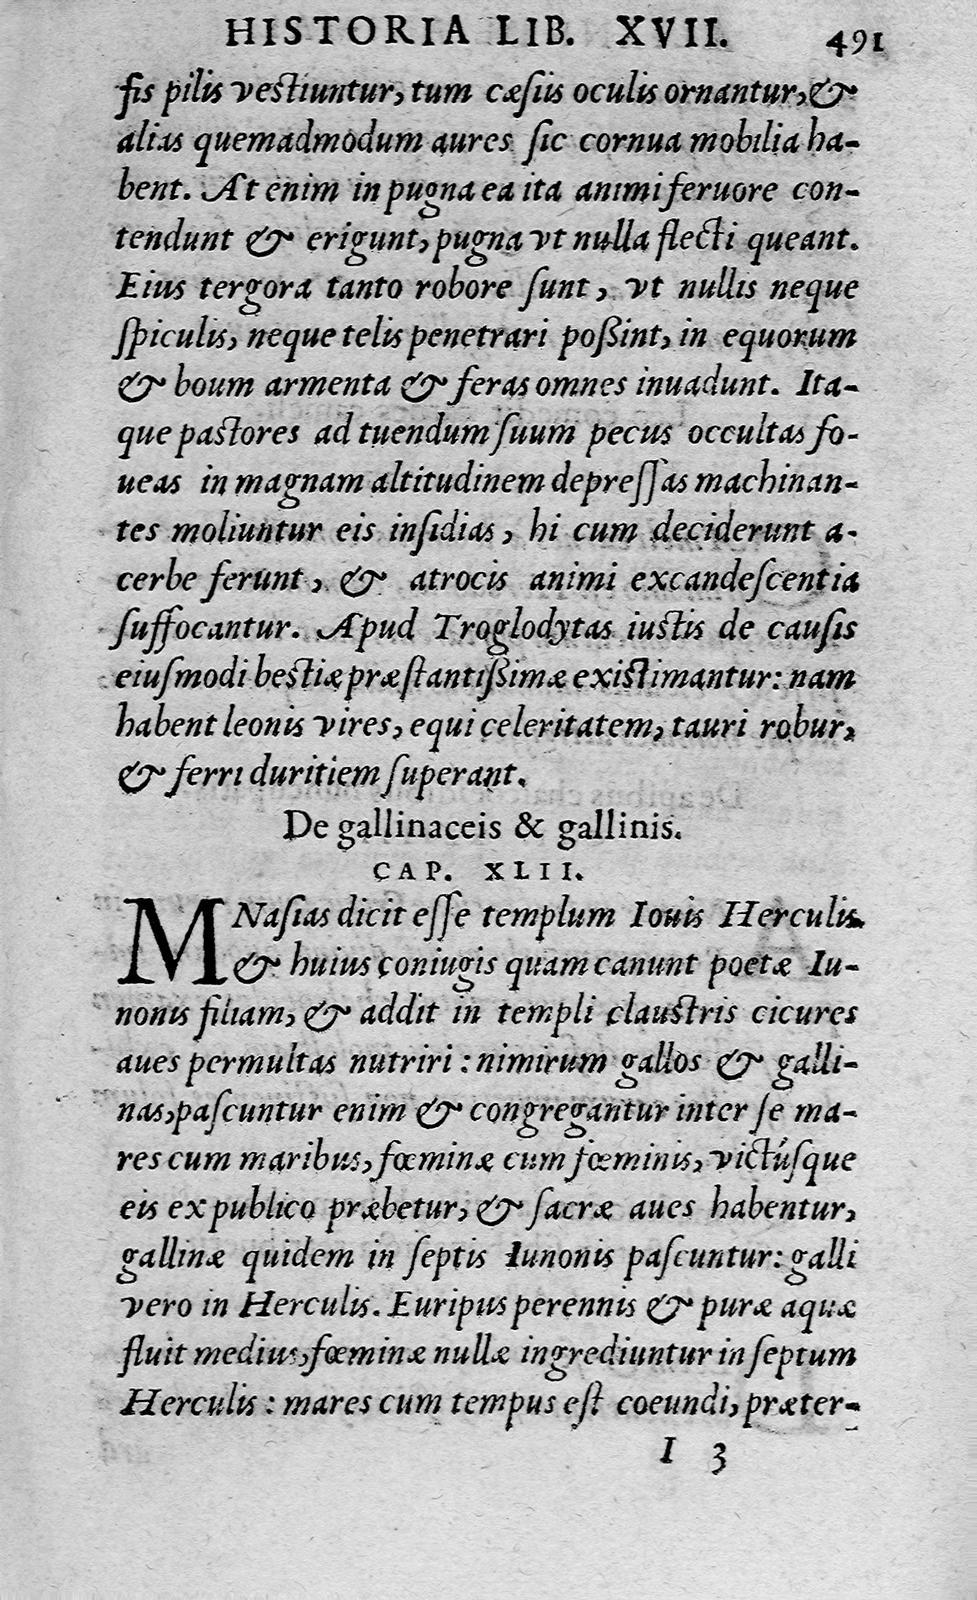 HISTORIA LIB. XVII. 491
ſis pilis veſtiuntur, tum cæſiis oculis ornantur, &
alias quemadmodum aures ſic cornua mobilia ha-
bent. At enim in pugna ea ita animi feruore con-
tendunt & erigunt, pugna vt nulla flecti queant.
Eius tergora tanto robore ſunt, vt nullis neque
ſpiculis, neque telis penetrari poßint, in equorum
& boum armenta & feras omnes inuadunt. Ita-
que paſtores ad tuendum ſuum pecus occultas fo-
ueas in magnam altitudinem depreſſas machinan-
tes moliuntur eis inſidias, hi cum deciderunt a-
cerbe ferunt, & atrocis animi excandeſcentia
ſuffocantur. Apud Troglodytas iuſtis de cauſis
eiuſmodi beſtiæ præſtantißimæ exiſtimantur: nam
habent leonis vires, equi celeritatem, tauri robur,
& ferri duritiem ſuperant.
De gallinaceis & gallinis.
CAP. XLII.
MNaſias dicit eſſe templum Iouis Herculis
& huius coniugis quam canunt poetæ Iu-
nonis filiam, & addit in templi clauſtris cicures
aues permultas nutriri: nimirum gallos & galli-
nas, paſcuntur enim & congregantur inter ſe ma-
res cum maribus, fœminæ cum fœminis, victúſque
eis ex publico præbetur, & ſacræ aues habentur,
gallinæ quidem in ſeptis Iunonis paſcuntur: galli
vero in Herculis. Euripus perennis & puræ aquæ
fluit medius, fœminæ nullæ ingrediuntur in ſeptum
Herculis: mares cum tempus eſt coeundi, præter-
I 3